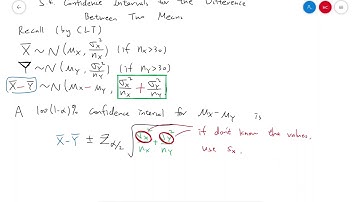 5.6 Confidence Intervals for the Difference
Between Two Means
Recall (by CLT)
X̄ ~ N(μₓ, σₓ²/nₓ) (if nₓ>30)
Ȳ ~ N(μᵧ, σᵧ²/nᵧ) (if nᵧ>30)
X̄-Ȳ ~ N(μₓ-μᵧ, σₓ²/nₓ + σᵧ²/nᵧ)
A 100(1-α)% confidence interval for μₓ-μᵧ is
X̄-Ȳ ± Z_{α/2} √(σₓ²/nₓ + σᵧ²/nᵧ) if don't know the values,
use sₓ.